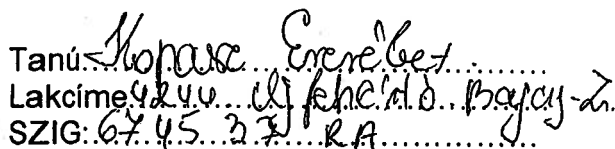 Tanú: Kopasz Erzsébet
Lakcíme: 4244 Újfehértó Bajcsy-Zs.
SZIG: 674537 RA